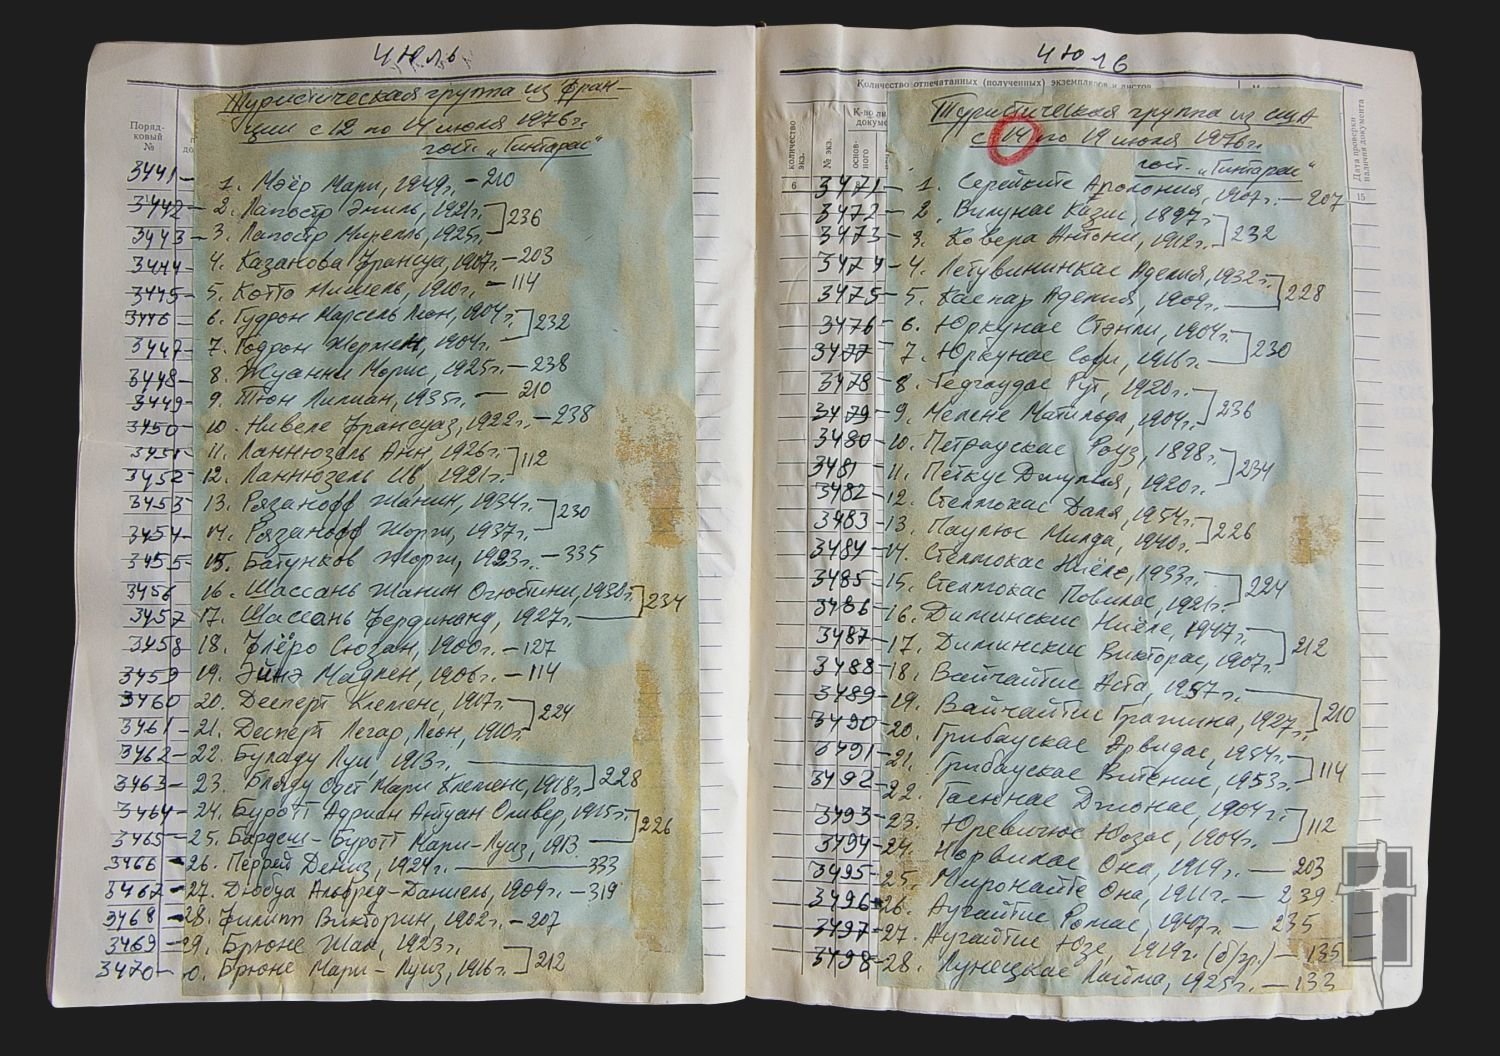 ИЮЛЬ
Поряд-
ковый
№
Туристическая группа из Фран-
ции с 12 по 14 июля 1976г.
гост. „Гинтарас“
3441 – 1. Мэёр Мари, 1949г. – 210
3442 – 2. Лапостр Эмиль, 1921г. 236
3443 – 3. Лапостр Мирелль, 1925г.
3444 – 4. Казанова Франсуа, 1907г. – 203
3445 – 5. Котто Мишель, 1910г. – 114
3446 6. Гудрон Марсель Леон, 1904г. 232
3447 – 7. Годрон Жермен, 1904г.
3448 – 8. Жуанни Морис, 1925г. – 238
3449 – 9. Тюн Лилиан, 1935г. – 210
3450 – 10. Нивеле Франсуаз, 1922г. – 238
3451 – 11. Ланнюзель Анн, 1926г. 112
3452 – 12. Ланнюзель Ив, 1921г.
3453 13. Рязанофф Жанин, 1934г. 230
3454 – 14. Рязанофф Жорги, 1937г.
3455 – 15. Батунков Жорги, 1923г. – 335
3456 16. Шассань Жанин Огюстини, 1930г. 234
3457 17. Шассань Фердинанд, 1927г.
3458 18. Флёро Сюзан, 1900г. – 127
3459 19. Эйнэ Мадлен, 1906г. – 114
3460 20. Десперт Клеменс, 1917г. 224
3461 – 21. Десперт Легар, Леон, 1910г.
3462 – 22. Буладу Луи, 1913г. 228
3463 – 23. Бляду Одет Мари Клеменс, 1918г.
3464 – 24. Буротт Адриан Антуан Оливер, 1915г. 226
3465 – 25. Бардеш-Буротт Мари-Луиз, 1913
3466 – 26. Перред Дениз, 1924г. – 333
3467 – 27. Дюбуа Альфред-Даниель, 1909г. – 319
3468 – 28. Филипп Викторин, 1902г. – 207
3469 – 29. Брюне Жак, 1923г. 212
3470 – 0. Брюне Мари-Луиз, 1916г.
ИЮЛЬ
Количество отпечатанных (полученных) экземпляров и листов
количество
экз.
№ экз.
основ-
ного
6
15
Дата проверки
наличия документа
Туристическая группа из США
с 14 по 19 июля 1976г.
гост. „Гинтарас“
3471 – 1. Серейките Аполония, 1907г. – 207
3472 – 2. Вилунас Казис, 1897г. 232
3473 – 3. Ковера Антони, 1912г.
3474 – 4. Летувининкас Аделия, 1932г. 228
3475 – 5. Каспар Аделия, 1909г.
3476 – 6. Юркунас Стэнли, 1904г. 230
3477 7. Юркунас Софи, 1916г.
3478 – 8. Гедгаудас Рут, 1920г. 236
3479 – 9. Мелене Матильда, 1904г.
3480 – 10. Петраускас Роуз, 1898г. 234
3481 11. Петкус Джулия, 1920г.
3482 – 12. Стелмокас Даля, 1954г. 226
3483 – 13. Паулюс Милда, 1940г.
3484 – 14. Стелмокас Ниёле, 1933г. 224
3485 – 15. Стелмокас Повилас, 1921г.
3486 – 16. Диминскис Ниёле, 1947г. 212
3487 – 17. Диминскис Викторас, 1907г.
3488 – 18. Вайчайтис Аста, 1957г. 210
3489 – 19. Вайчайтис Гражина, 1927г.
3490 – 20. Грибаускас Арвидас, 1954г. 114
3491 – 21. Грибаускас Витенис, 1953г.
3492 – 22. Гасюнас Джонас, 1904г. 112
3493 – 23. Юревичюс Юозас, 1904г.
3494 – 24. Норвилас Она, 1919г. – 203
3495 – 25. Миронайте Она, 1911г. – 239
3496 – 26. Аугайтис Ромас, 1947г. – 235
3497 – 27. Аугайтис Юзе, 1919г. (б/гр.) – 135
3498 – 28. Лунецкас Лайма, 1925г. – 133